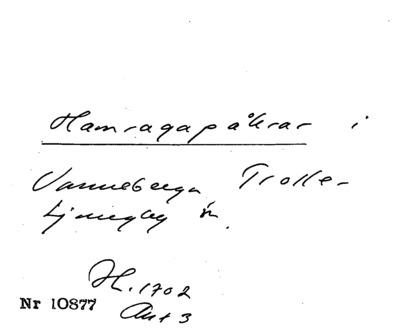 Hamragapåkrar i
Vanneberga Trolle-
Ljungby sn.
H. 1702
Nr 10877
Ant 3